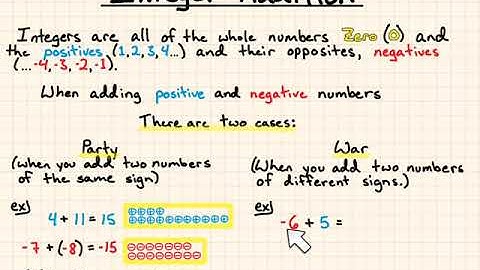 Integer Addition
Integers are all of the whole numbers Zero (0) and
the positives (1,2,3,4...) and their opposites, negatives
(...-4,-3,-2,-1).
When adding positive and negative numbers
There are two cases:
Party
(when you add two numbers
of the same sign)
ex)
4 + 11 = 15
-7 + (-8) = -15
War
(When you add two numbers
of different signs.)
ex)
-6 + 5 =